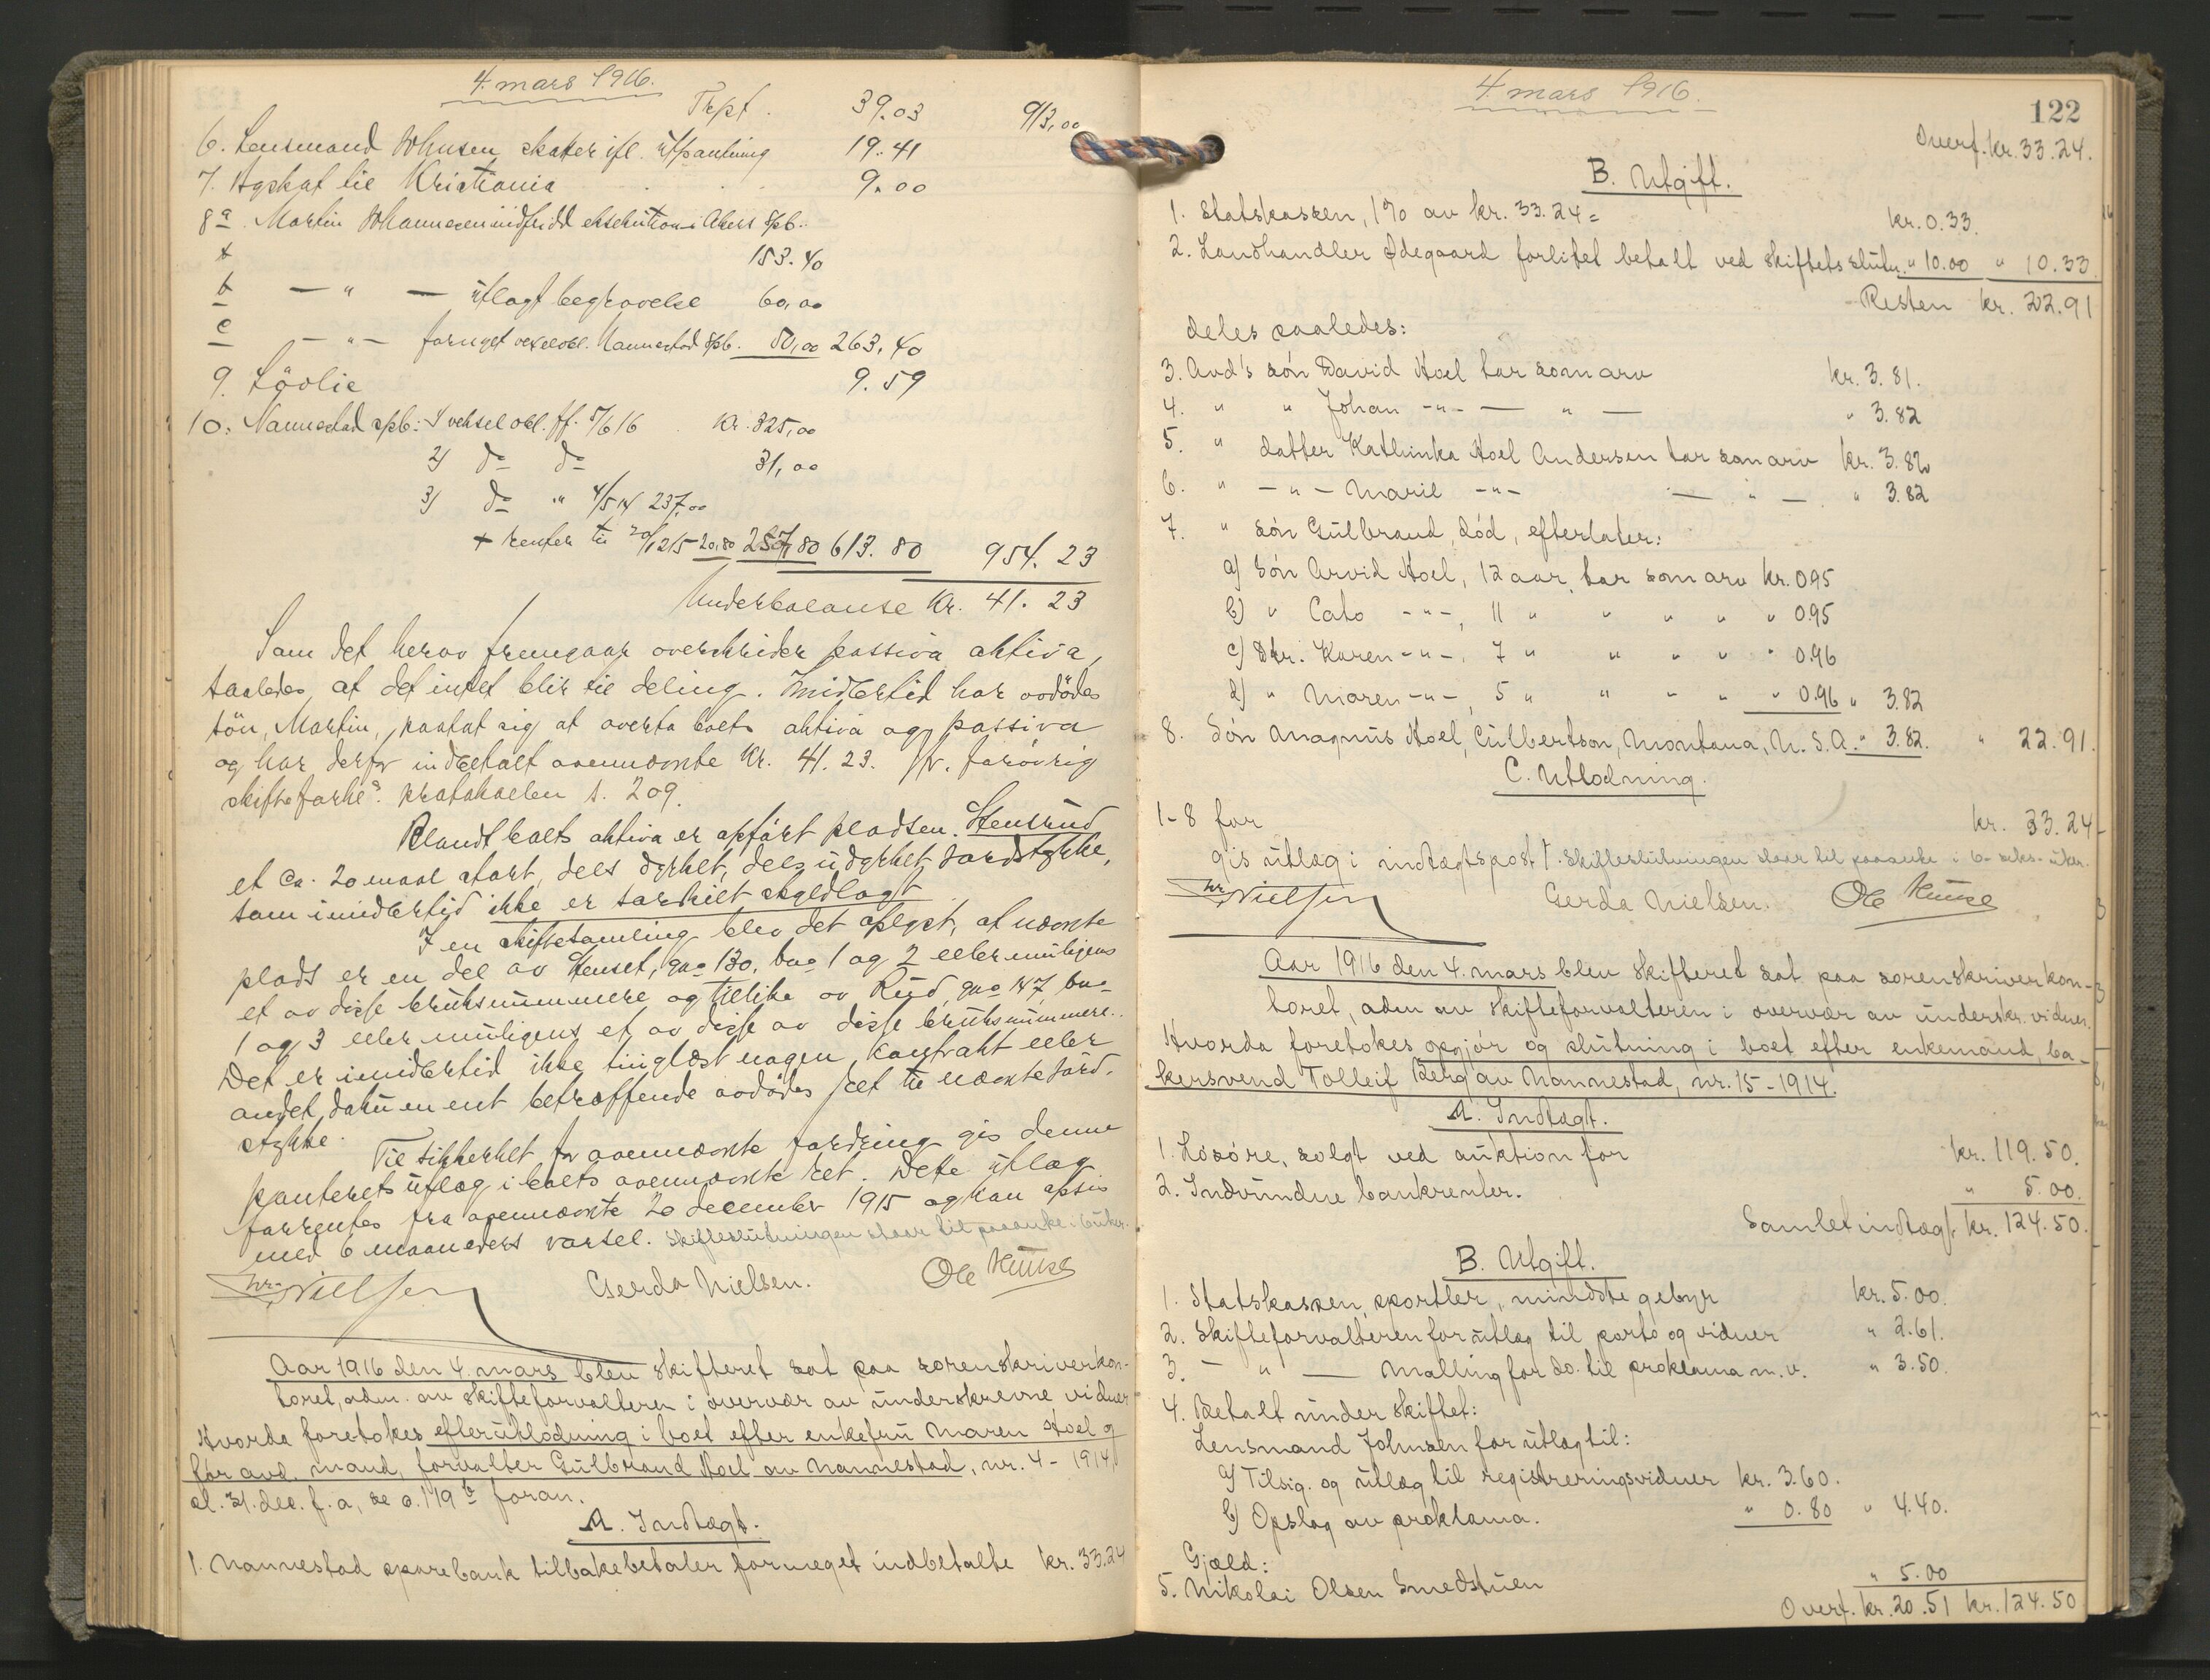 4. mars 1916.
Trpt. 39.03 913,00
6. Lensmand Johnsen skatter ifl. utpantning 19.41
7. Bgskat til Kristiania 9.00
8a. Martin Johannesen indfridd eksekution i Akers Spb.
153.40
b — " — utlagt begravelse 60,00
c — " — fornyet vekselobl. Nannestad Spb. 50,00 263,40
9. Løvlie 9.59
10. Nannestad spb: 1 veksel obl. ff. 5/6 16 kr. 325,00
2) do do 31,00
3) do " 4/5 14 237,00
+ renter til 20/12 15 20,80 257,80 613.80 954.23
Underbalanse Kr. 41.23
Som det herav fremgaar overskrider passiva aktiva,
saaledes at det intet blir til deling. Imidlertid har avdødes
søn, Martin, paatat sig at overta boets aktiva og passiva
og har derfor indbetalt ovennævnte Kr. 41.23. Jfr. forøvrig
skifteforhs. protokollen s. 209.
Blandt boets aktiva er opført pladsen Stensrud
et ca. 20 maal stort, dels dyrket, dels udyrket jordstykke,
som imidlertid ikke er særskilt skyldlagt.
I en skiftesamling blev det oplyst, at nævnte
plads er en del av Henset, gno 130, bno 1 og 2 eller muligens
et av disse bruksnummere og tillike av Rud, gno 147, bno
1 og 3 eller muligens et av disse av disse bruksnummere.
Det er imidlertid ikke tinglæst nogen kontrakt eller
andet dokument betræffende avdødes ret til nævnte jord-
stykke.
Til sikkerhet for ovennævnte fordring gis denne
panterets utlæg i boets ovennævnte ret. Dette utlæg
forrentes fra ovennævnte 20 december 1915 og kan opsis
med 6 maaneders varsel. Skifteslutningen staar til paaanke i 6 uker.
Nielsen Gerda Nielsen. Ole Kruse
Aar 1916 den 4. mars blev skifteret sat paa sorenskriverkon-
toret, adm. av skifteforvalteren i overvær av underskrevne vidner
Hvorda foretokes efterutlodning i boet efter enkefru Maren Hoel og
før avd. mand, forvalter Gulbrand Hoel av Nannestad, nr. 4 - 1914,
sl. 31. dec. f. a, se s. 119 b foran.
A. Indtægt.
1. Nannestad sparebank tilbakebetaler formeget indbetalte kr. 33.24
4 mars 1916.
122
Overf. kr. 33.24.
B. Utgift.
1. Statskassen, 1% av kr. 33.24 = kr. 0.33.
2. Landhandler Ødegaard forlitet betalt ved skiftets slutn. " 10.00 " 10.33
Resten kr. 22.91
deles saaledes:
3. Avd's søn David Hoel tar som arv kr. 3.81.
4. " " Johan - " - — " — " 3.82
5. " datter Kathinka Hoel Andersen tar som arv kr. 3.82
6. " - " - Maril - " - — " — " 3.82
7. " søn Gulbrand, død, efterlater:
a) Søn Arvid Hoel, 12 aar, tar som arv kr. 0.95
b) " Cato - " -, 11 " " " " " 0.95
c) Dtr. Karen - " -, 7 " " " " " 0.96
d) " Maren - " -, 5 " " " " " 0.96 " 3.82
8. Søn Magnus Hoel, Culbertson, Montana, U. S. A. " 3.82. " 22.91.
C. Utlodning.
1-8 for kr. 33.24
gis utlæg i indtægtspost 1. Skifteslutningen staar til paaanke i 6- seks- uker.
Nielsen Gerda Nielsen. Ole Kruse
Aar 1916 den 4. mars blev skifteret sat paa sorenskriverkon-
toret, adm av skifteforvalteren i overvær av underskr. vidner.
Hvorda foretokes opgjør og slutning i boet efter enkemand, ba-
kersvend Tolleif Berg av Nannestad, nr. 15-1914.
A. Indtægt.
1. Løsøre, solgt ved auktion for kr. 119.50.
2. Indvundne bankrenter. " 5.00.
Samlet indtægt kr. 124.50.
B. Utgift.
1. Statskassen sportler, mindste gebyr kr. 5.00.
2. Skifteforvalteren for utlæg til porto og vidner " 2.61.
3. — " — Malling for do. til proklama m. v. " 3.50.
4. Betalt under skiftet:
Lensmand Johnsen for utlæg til:
a) Tilsig. og utlæg til registreringsvidner kr. 3.60.
b) Opslag av proklama. " 0.80 " 4.40.
Gjæld:
5. Nikolai Olsen Smedstuen " 5.00
Overf. kr. 20.51 kr. 124.50